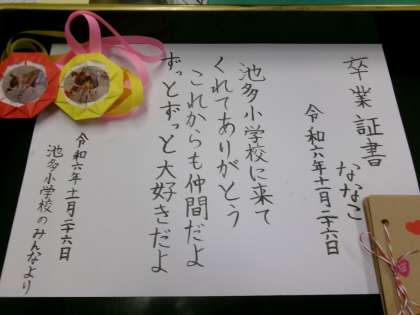 卒業証書
ななこ
令和六年十一月二十六日
池多小学校に来て
くれてありがとう
これからも仲間だよ
ずっとずっと大好きだよ
令和六年十一月二十六日
池多小学校のみんなより